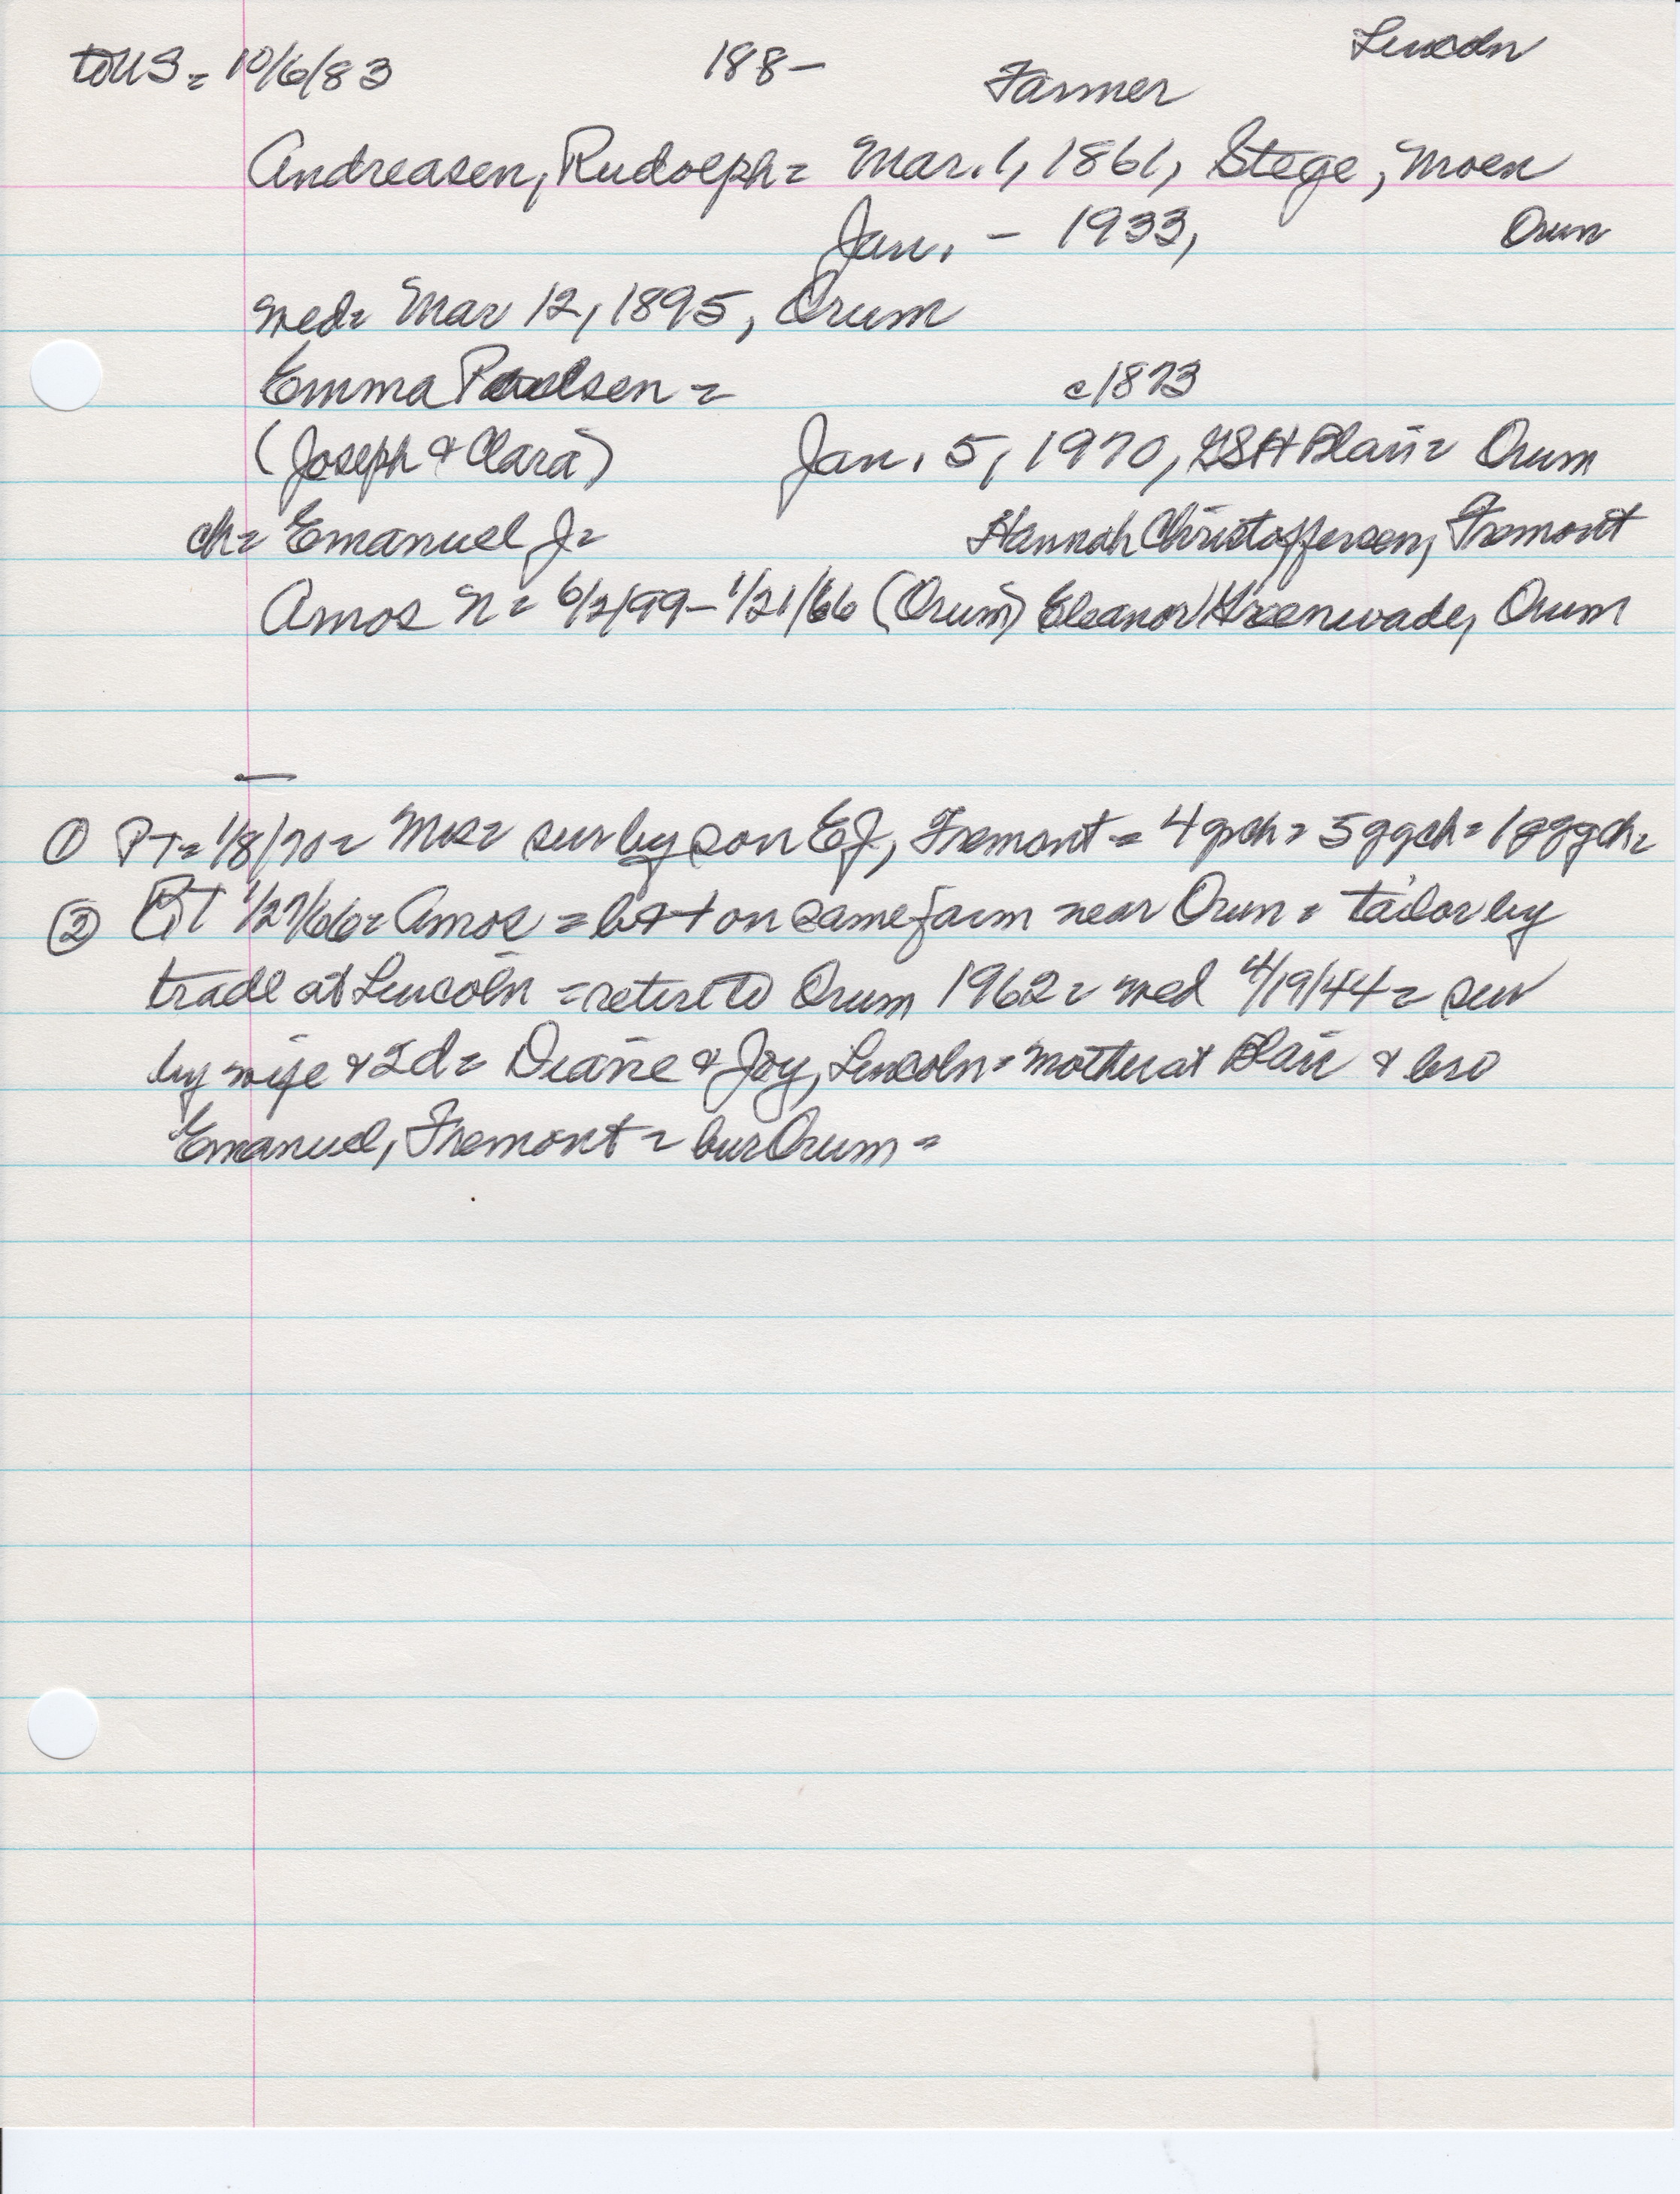 to US = 10/6/83 188- Farmer Lincoln
Andreasen, Rudolph = Mar. 1, 1861, Stege, Moen
Jan. - 1933, Orum
med = Mar 12, 1895, Orum
Emma Paulsen = c1873
(Joseph & Clara) Jan. 5, 1970, GSH Blair = Orum
ch = Emanuel J = Hannah Christoffersen, Fremont
Amos N = 6/2/99 - 1/21/66 (Orum) Eleanor Kreenwade, Orum
① PT = 1/8/70 = Mrs = sur by son EJ, Fremont = 4 gch = 5 ggch = 1 gggch =
② PT 1/27/66 = Amos = b & + on same farm near Orum = tailor by
trade at Lincoln = retire to Orum 1962 = med 4/19/44 = sur
by wife & 2d = Diane & Joy, Lincoln = mother at Blair & bro
Emanuel, Fremont = bur Orum =